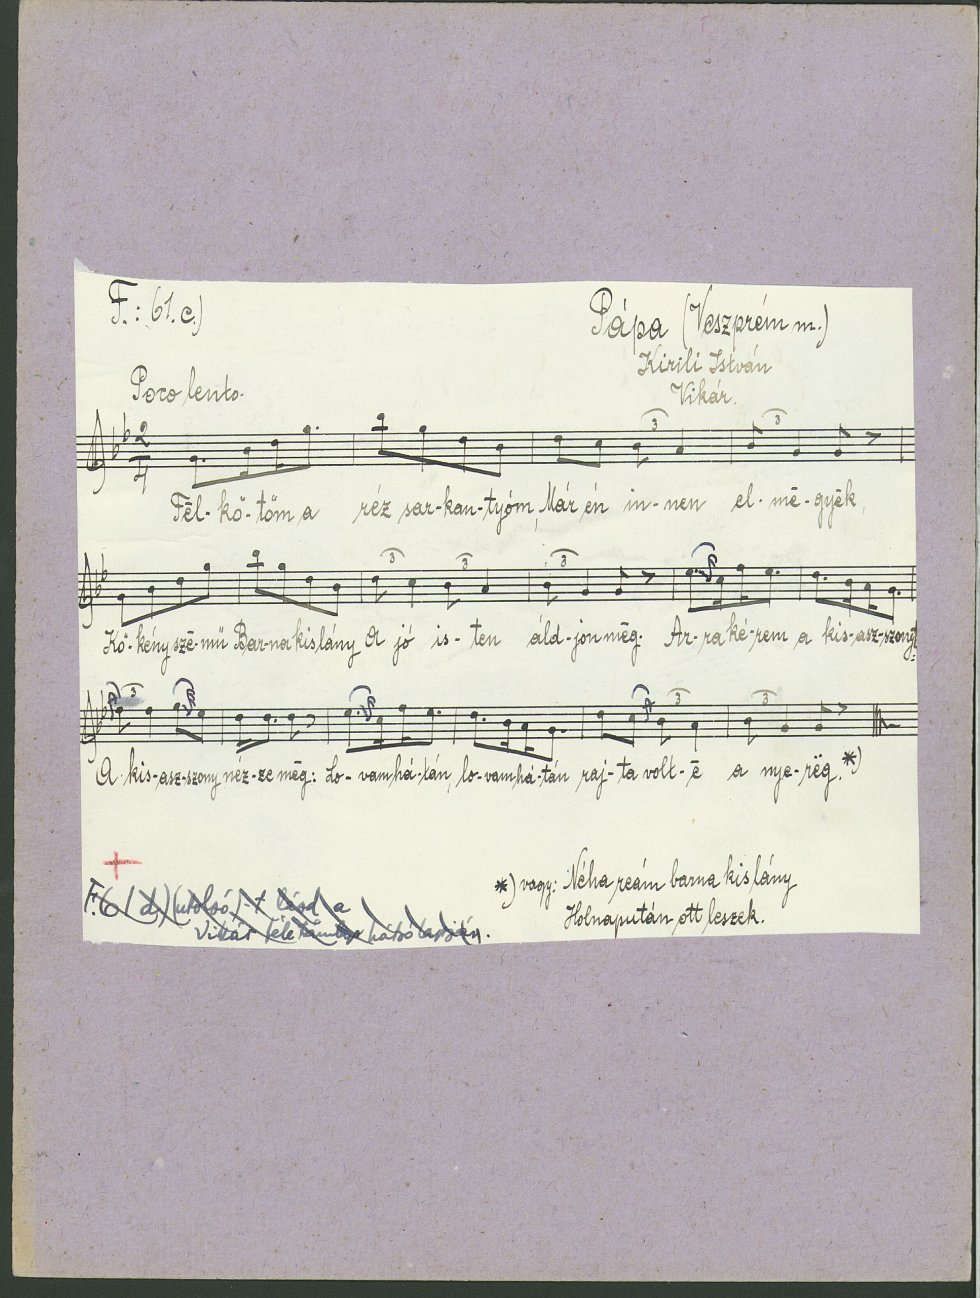 F.: 61.c.)
Pápa (Veszprém m.)
Kirili István
Vikár.
Poco lento.
2
4
3
3
Fēl-kö-töm a réz sar-kan-tyóm, Már én in-nen el-mē-gyēk,
3
3
3
Kö-kény szē-mű Bar-na kislány A jó is-ten áld-jon mēg. Ar-ra ké-rem a kis-asz-szonyt
3
3
3
A kis-asz-szony néz-ze mēg: Lo-vam há-tán, lo-vam há-tán raj-ta volt-ē a nye-rëg. *)
*) vagy: Néha reám barna kislány
Holnapután ott leszek.
F. 61 d) (utolsó) -t lásd a
Vikár